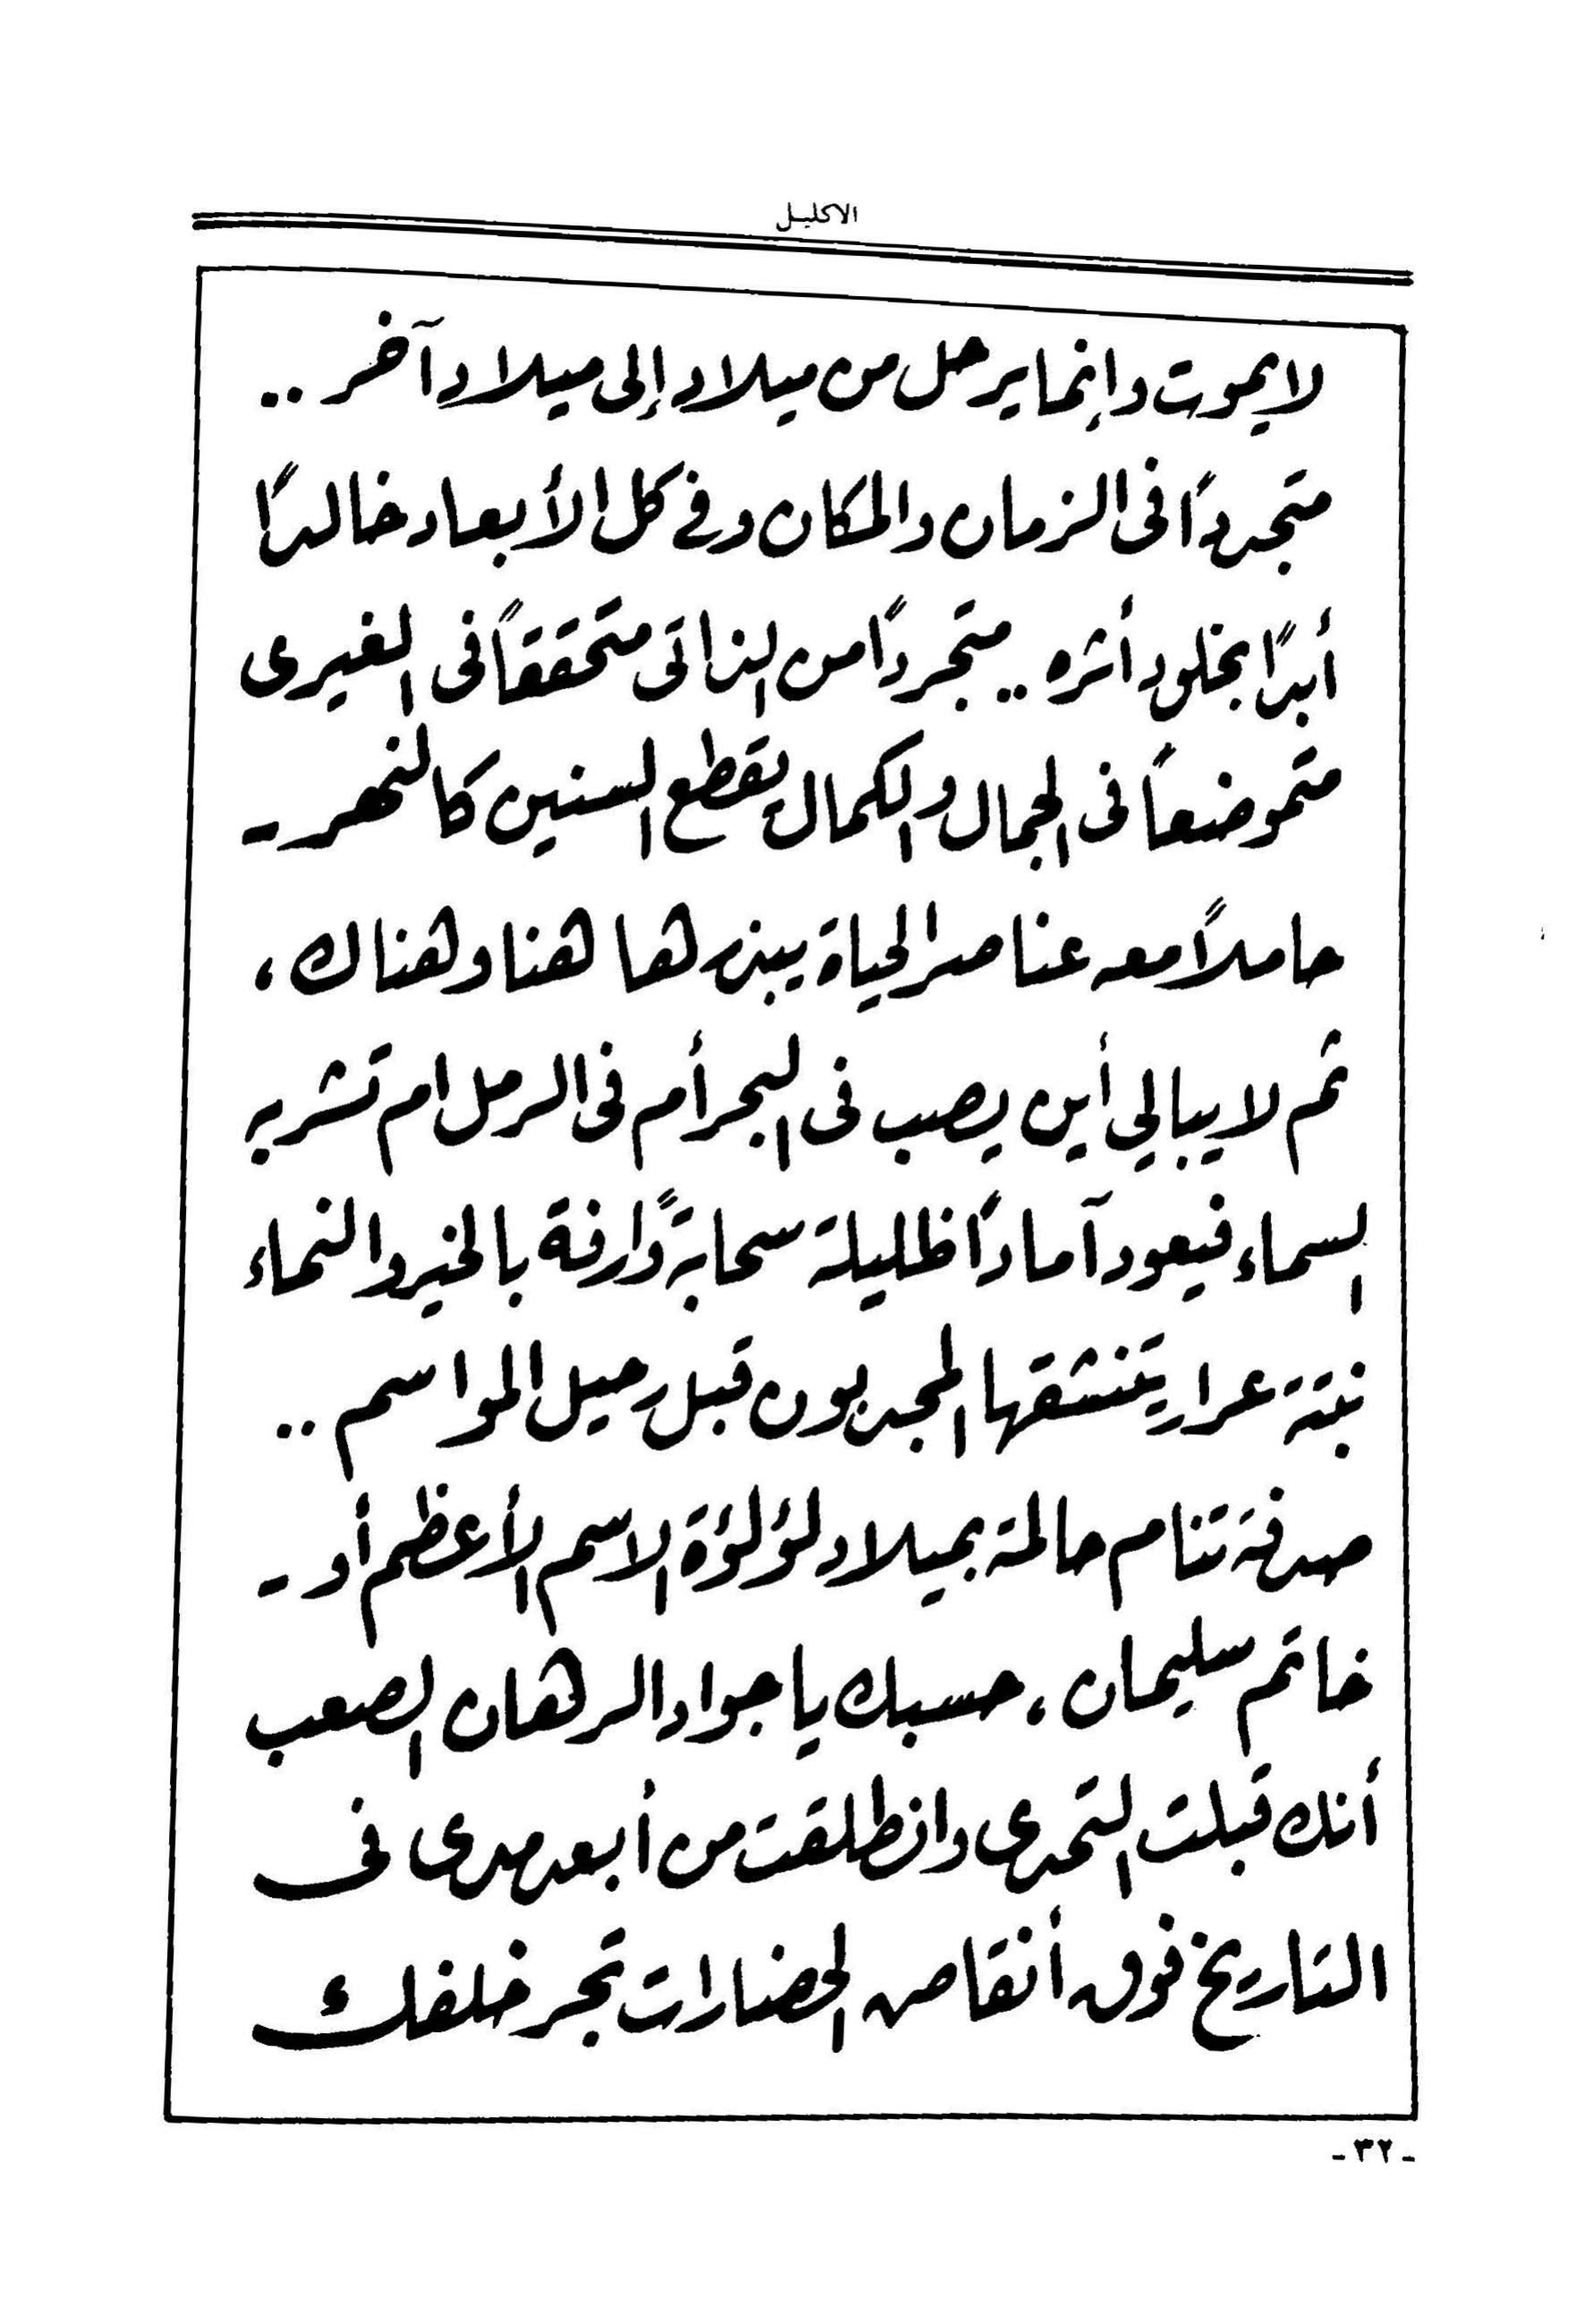 الاكليل
لا يموت وإنما يرحل من ميلاد إلى ميلادِ آخر ..
متجددًا فى الزمان والمكان وفي كل الأبعاد خالدًا
أبدًا بخلود أثره .. متجردًا من الذاتى متحققاً فى الغيرى
متموضعاً فى الجمال والكمال يقطع السنين كالنهر -
حاملاً معه عناصر الحياة يبذرها هنا وهناك ،
ثم لا يبالي أين يصب فى البحر أم فى الرمل ام تشربه
السماء فيعود آمادًا ظليلة سحابةً وارفة بالخير والنماء
نبتة عرار يتنشقها المجدبون قبل رحيل المواسم ..
صدفة تنام حالمة بميلاد لؤلؤة الاسم الأعظم أو -
خاتم سليمان ، حسبك يا جواد الرهان الصعب
أنك قبلت التحدى وانطلقت من أبعد مدى فى
التاريخ فوق أنقاض الحضارات تجر خلفك
- ٣٢ -